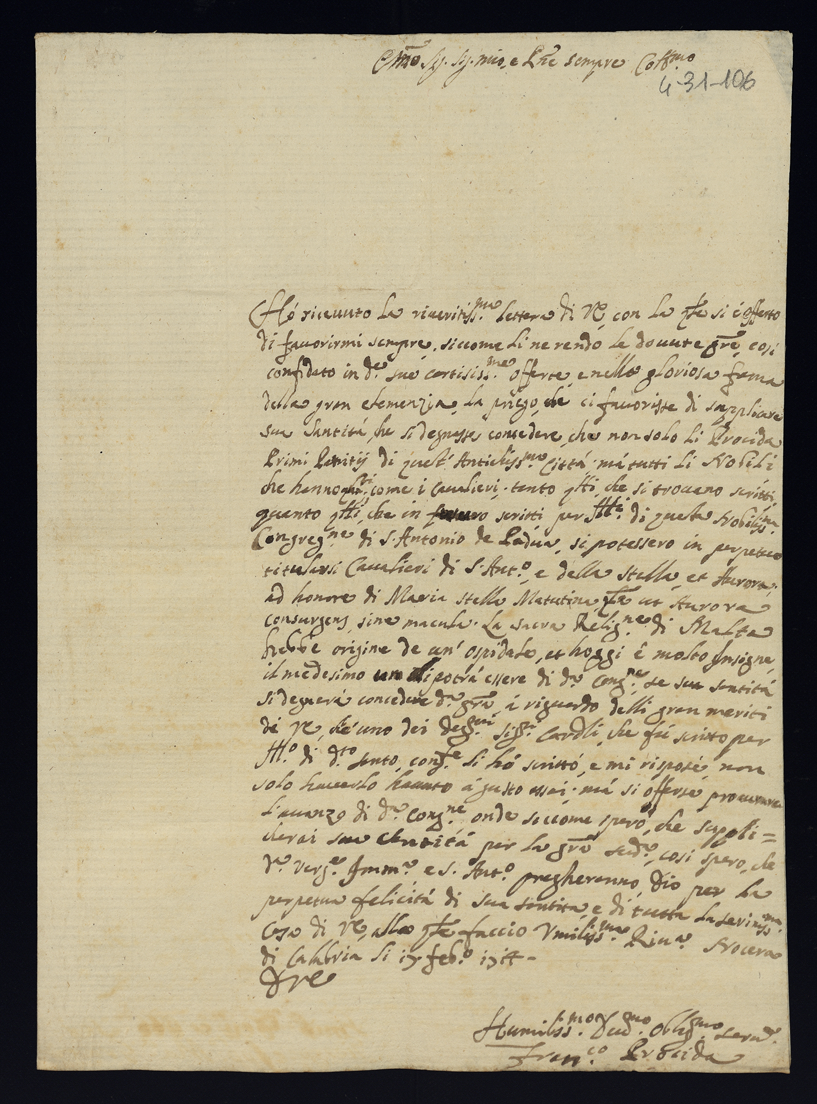 Em.mo Sig. Sig. mio, e Pne sempre Coll.mo
4-31-106
Hò riceuuto la riueritiss.ma lettera di VE, con la qle si è offerto
di fauorirmi sempre, siccome li ne rendo le douute grè, così
confidato in d.e sue cortisiss.me offerte, e nella gloriosa fama
della gran clemenzia, la priego, che ci fauorisse di supplicare
sua Santità, che si degnasse concedere, che non solo li Procida
Primi Patritij di quest'Antichiss.mo Città, mà tutti li Nobili
che hanno come i Caualieri, tanto qlli, che si trouano scritti,
quanto qlli, che in futuro scritti per flli di questa Nobiliss.ma
Congreg.ne di S. Antonio de Padua, si potessero in perpetuo
titularsi Caualieri di S. Ant.o, e della stella, et Aurora,
ad honore di Maria Stella Matutina qsta ut Aurora
consurgens, sine macula. La sacra Relig.ne di Malta
hebbe origine de un'ospidale, et hoggi è molto insigne,
il medesimo potrà essere di d.a Cong.ne, se sua santità
si degnerà concedere d.a grã, à riguardo delli gran meriti
de VE, ch'è uno dei deg.mi Sig.ri Cardli, che fù scritto per
flló di d.to santo, li hà scrittò, e mi rispose, non
solo hauerlo hauuto à gusto assai, mà si offerse procurare
l'auanzo di d.a Cong.ne onde siccome sperò, che suppli=
cherai sua santità per la grã sud.a, così spero, che
d.a Verg.e Imm.a e S. Ant.o pregheranno, Dio per la
perpetua felicità di sua santita, e di tutta la seriniss.ma
Casa di VE, alla qle faccio Vmiliss.ma Riu.a Nocera
di Calabria li 17 feb.o
D VE
Humiliss.mo Deu.mo Oblig.mo Seru.e
Fran.co Procida